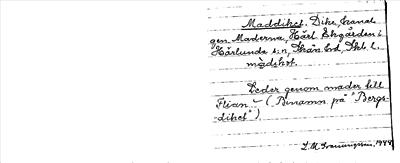 Maddiket. Dike, kanal
gen. Maderna, Härl. Ekgården i
Härlunda s:n, Skar. Ed, Akt. 1.
mádikət.
Leder genom mader till
Flian – (Binamn på "Bergs-
diket").
L.M. 1944